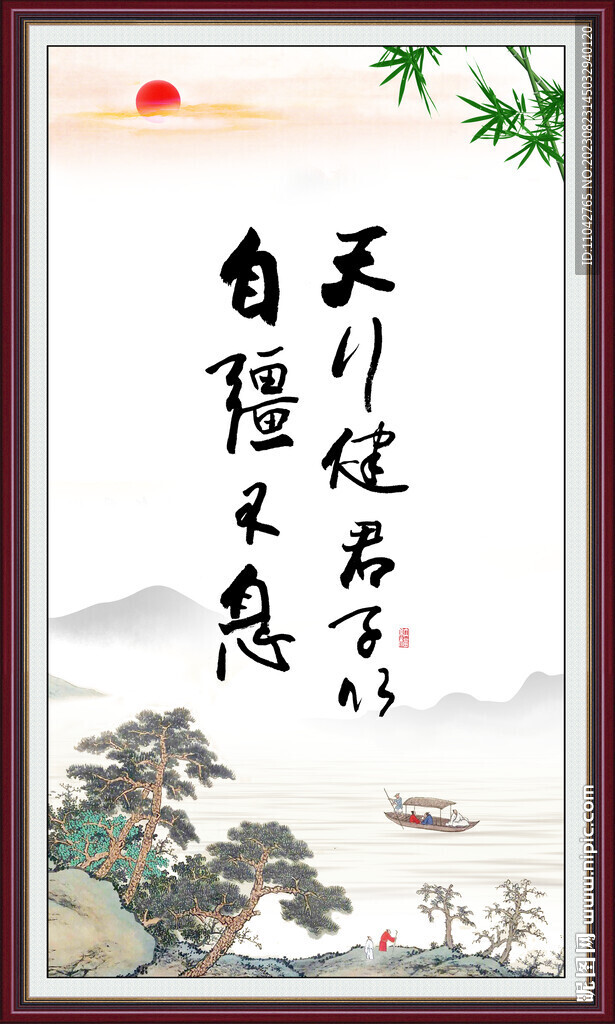 天行健君子以
自疆不息
ID:11042765 NO:20230823145032940120
昵图网 www.nipic.com